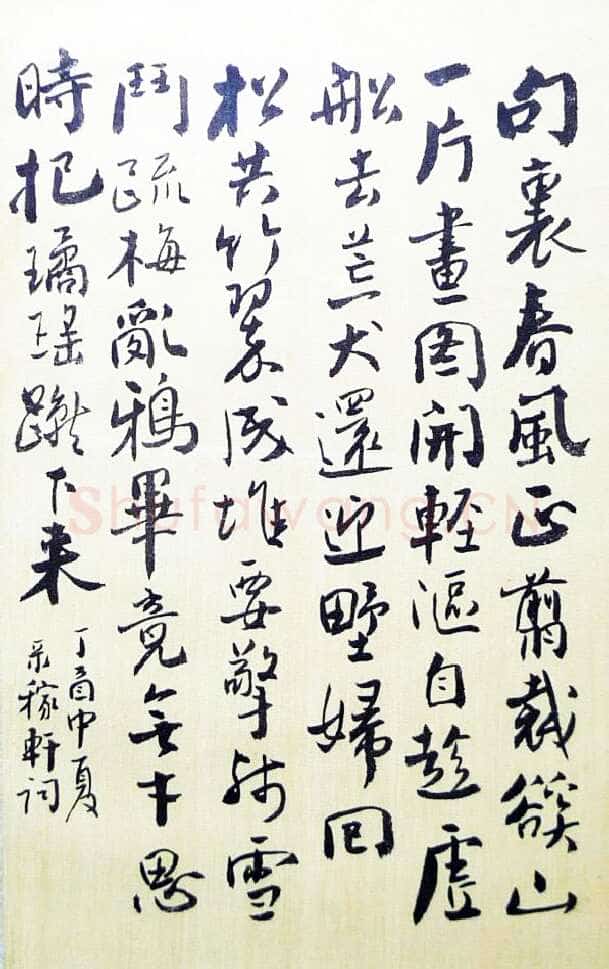 句裏春風正翦裁谿山
一片畫圖開輕漚自趁虛
船去荒犬還迎野婦回
松共竹翠成堆要擎殘雪
鬥疏梅亂鴉畢竟無才思
時把瓊瑤蹴下来
丁酉中夏
录稼軒詞
Shufawang.CN